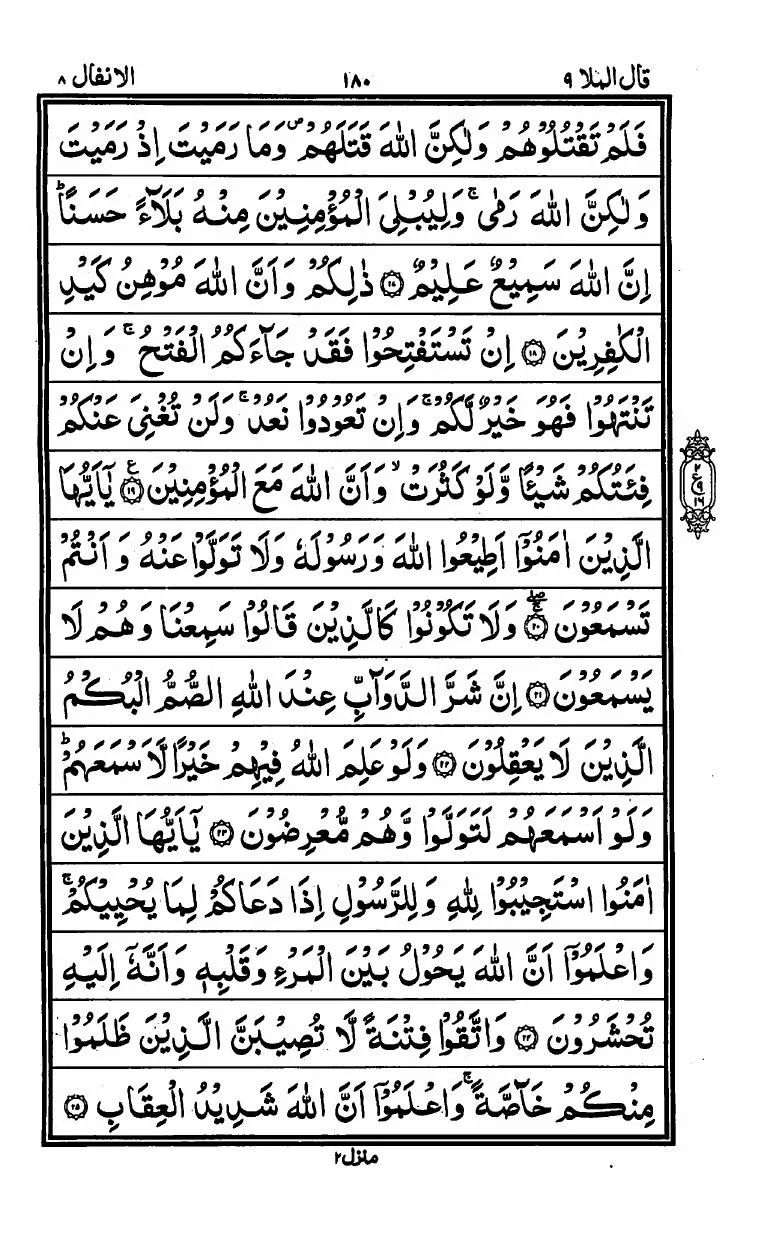 قال الملا ٩ ١٨٠ الانفال ٨
فَلَمْ تَقْتُلُوْهُمْ وَلٰكِنَّ اللّٰهَ قَتَلَهُمْ ۪ وَمَا رَمَيْتَ اِذْ رَمَيْتَ
وَلٰكِنَّ اللّٰهَ رَمٰى ۚ وَلِيُبْلِىَ الْمُؤْمِنِيْنَ مِنْهُ بَلَآءً حَسَنًا ؕ
اِنَّ اللّٰهَ سَمِيْعٌ عَلِيْمٌ ﴿۱۷﴾ ذٰلِكُمْ وَاَنَّ اللّٰهَ مُوْهِنُ كَيْدِ
الْكٰفِرِيْنَ ﴿۱۸﴾ اِنْ تَسْتَفْتِحُوْا فَقَدْ جَآءَكُمُ الْفَتْحُ ۚ وَاِنْ
تَنْتَهُوْا فَهُوَ خَيْرٌ لَّكُمْ ۚ وَاِنْ تَعُوْدُوْا نَعُدْ ۚ وَلَنْ تُغْنِىَ عَنْكُمْ
فِئَتُكُمْ شَيْئًا وَّلَوْ كَثُرَتْ ۙ وَاَنَّ اللّٰهَ مَعَ الْمُؤْمِنِيْنَ ﴿۱۹﴾ ع يٰۤاَيُّهَا
الَّذِيْنَ اٰمَنُوْۤا اَطِيْعُوا اللّٰهَ وَرَسُوْلَهٗ وَلَا تَوَلَّوْا عَنْهُ وَاَنْتُمْ
تَسْمَعُوْنَ ﴿۲۰﴾ وَلَا تَكُوْنُوْا كَالَّذِيْنَ قَالُوْا سَمِعْنَا وَهُمْ لَا
يَسْمَعُوْنَ ﴿۲۱﴾ اِنَّ شَرَّ الدَّوَآبِّ عِنْدَ اللّٰهِ الصُّمُّ الْبُكْمُ
الَّذِيْنَ لَا يَعْقِلُوْنَ ﴿۲۲﴾ وَلَوْ عَلِمَ اللّٰهُ فِيْهِمْ خَيْرًا لَّاَسْمَعَهُمْ ؕ
وَلَوْ اَسْمَعَهُمْ لَتَوَلَّوْا وَّهُمْ مُّعْرِضُوْنَ ﴿۲۳﴾ يٰۤاَيُّهَا الَّذِيْنَ
اٰمَنُوا اسْتَجِيْبُوْا لِلّٰهِ وَلِلرَّسُوْلِ اِذَا دَعَاكُمْ لِمَا يُحْيِيْكُمْ ۚ
وَاعْلَمُوْۤا اَنَّ اللّٰهَ يَحُوْلُ بَيْنَ الْمَرْءِ وَقَلْبِهٖ وَاَنَّهٗۤ اِلَيْهِ
تُحْشَرُوْنَ ﴿۲۴﴾ وَاتَّقُوْا فِتْنَةً لَّا تُصِيْبَنَّ الَّذِيْنَ ظَلَمُوْا
مِنْكُمْ خَآصَّةً ۚ وَاعْلَمُوْۤا اَنَّ اللّٰهَ شَدِيْدُ الْعِقَابِ ﴿۲۵﴾
منزل٢
٢
ع ٩
١٦